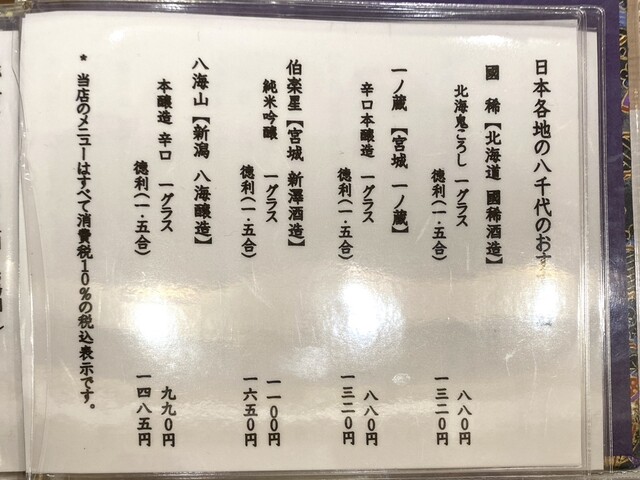 日本各地の八千代のおす
國稀【北海道 國稀酒造】
北海鬼ころし 一グラス 八八〇円
徳利（一・五合） 一三二〇円
一ノ蔵【宮城 一ノ蔵】
辛口本醸造 一グラス 八八〇円
徳利（一・五合） 一三二〇円
伯楽星【宮城 新澤酒造】
純米吟醸 一グラス 一一〇〇円
徳利（一・五合） 一六五〇円
八海山【新潟 八海醸造】
本醸造 辛口 一グラス 九九〇円
徳利（一・五合） 一四八五円
* 当店のメニューはすべて消費税10%の税込表示です。